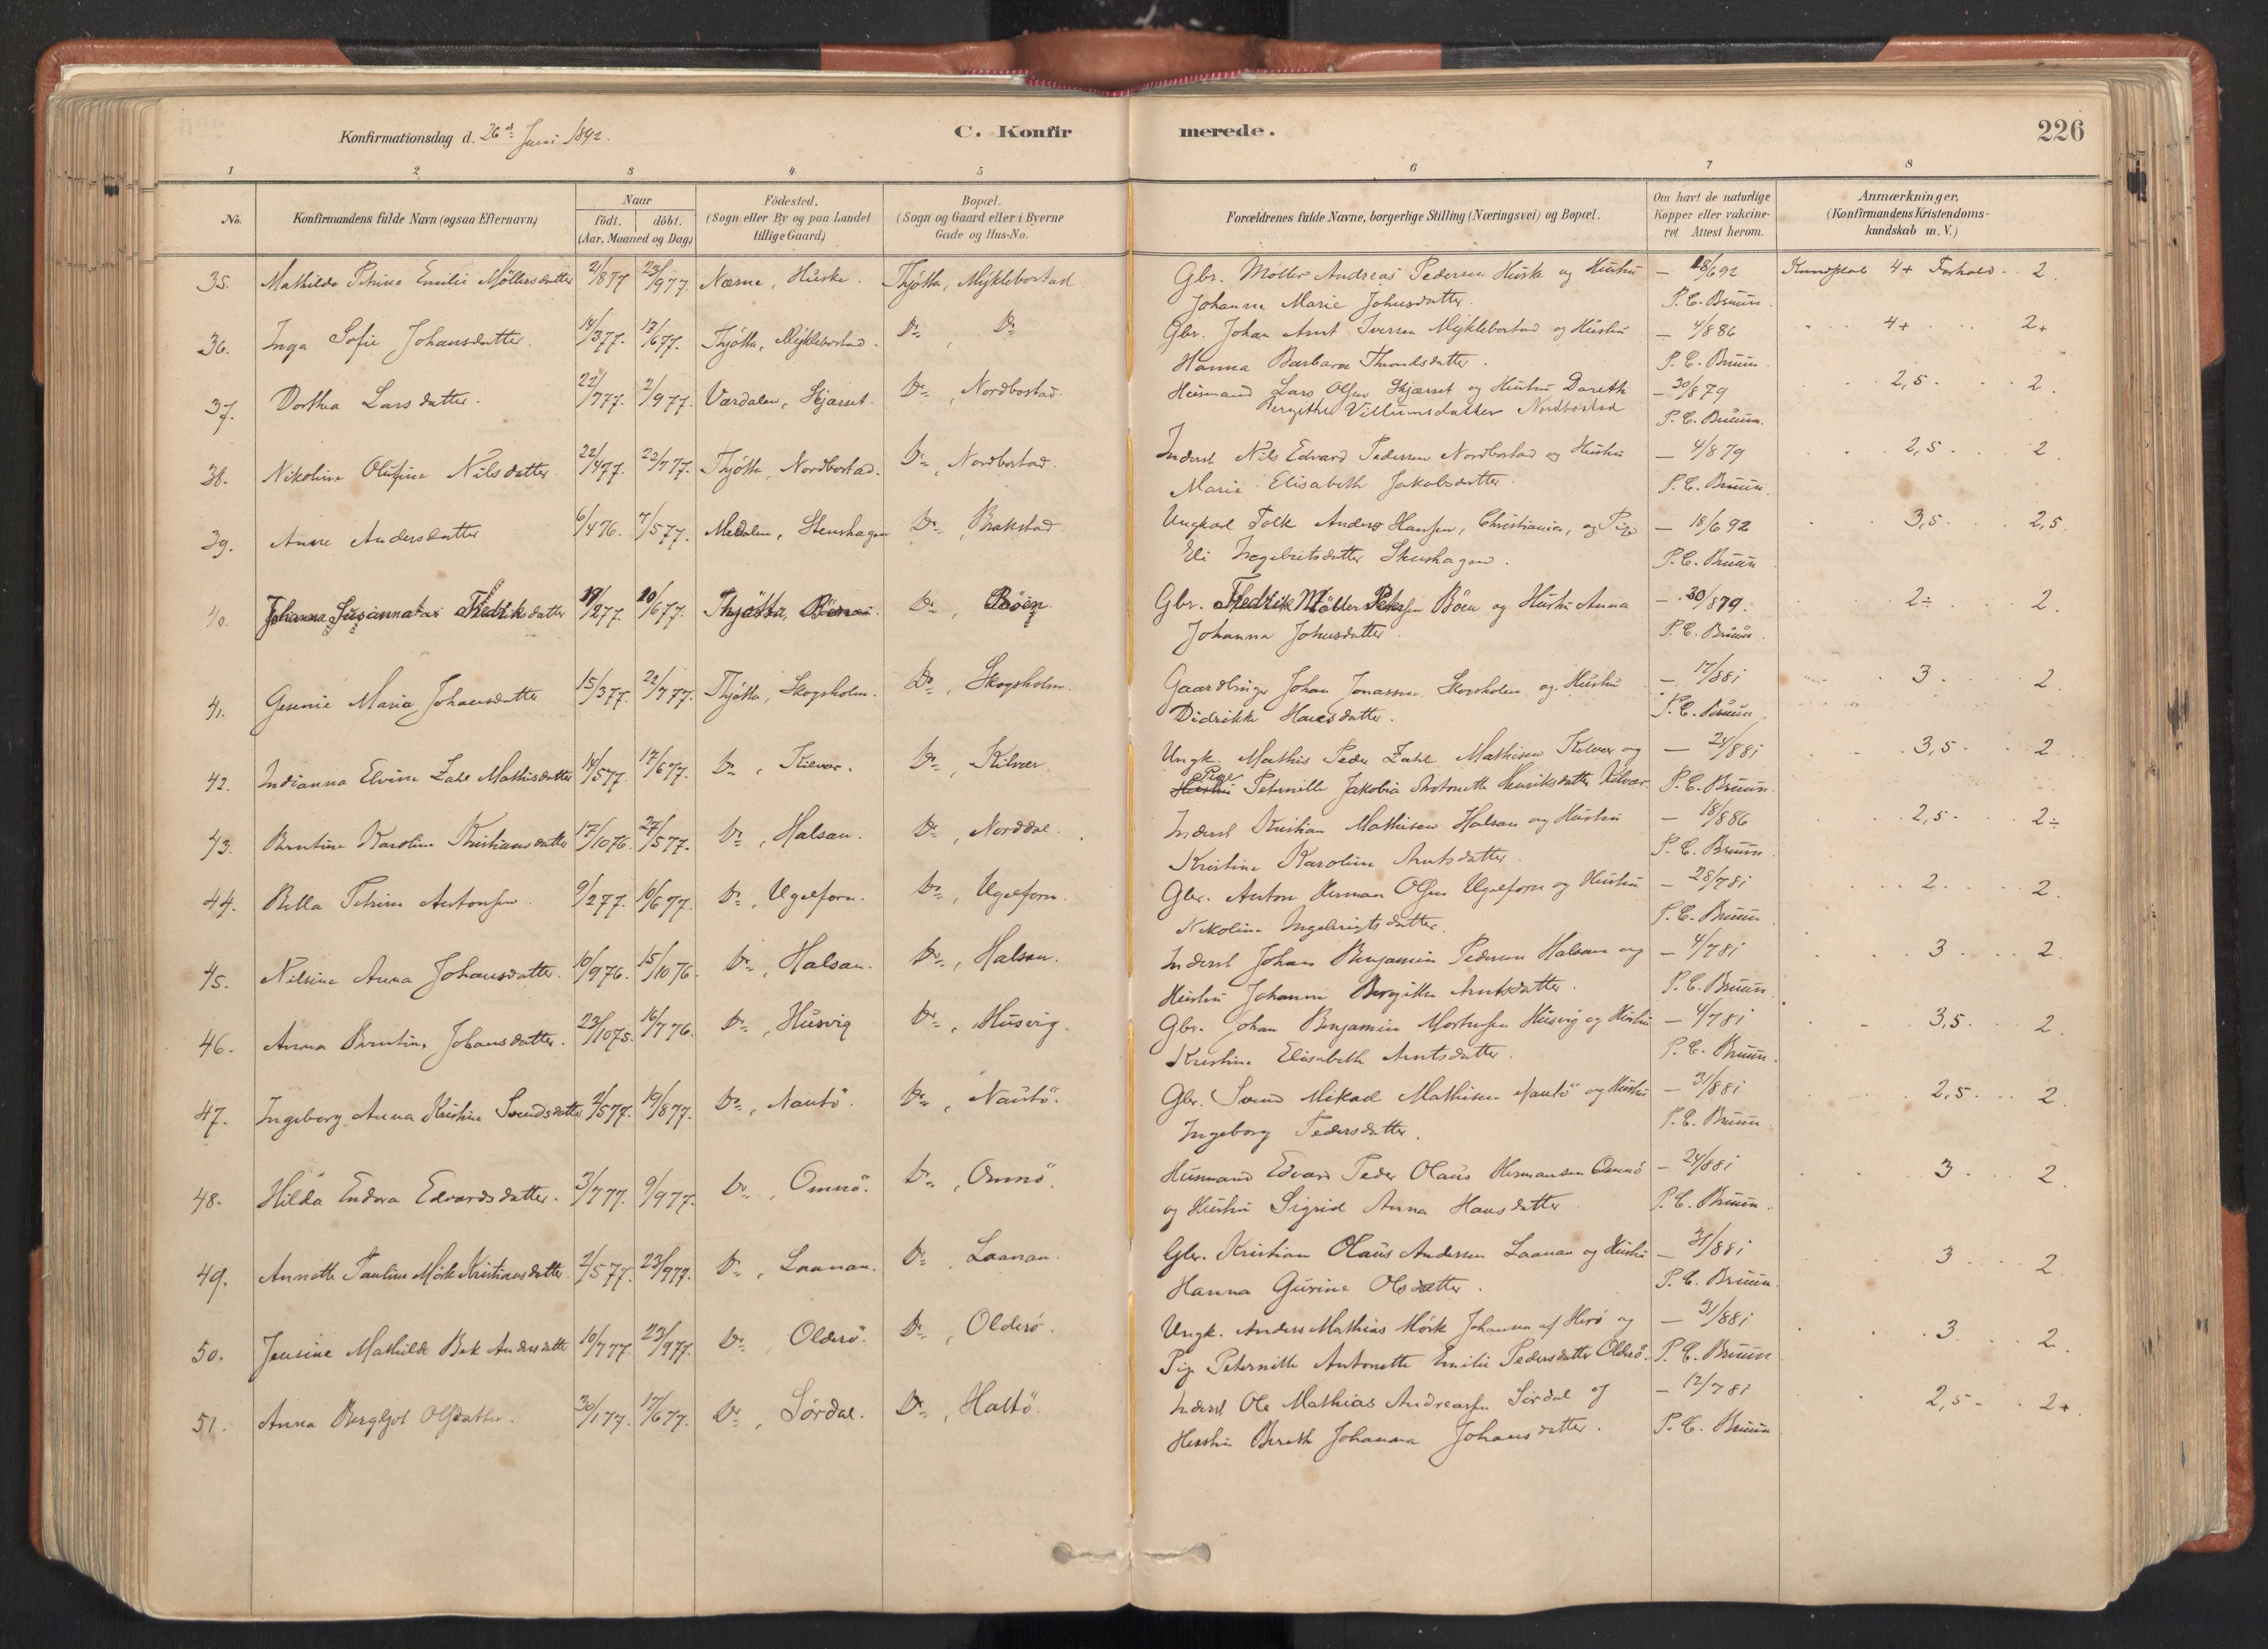 Konfirmationsdag d. 26d Juni 1892. C. Konfirmerede. 226
1 2 3 4 5 6 7 8
No. Konfirmandens fulde Navn (ogsaa Efternavn) Naar födt. döbt. (Aar, Maaned og Dag) Födested. (Sogn eller By og paa Landet tillige Gaard) Bopæl. (Sogn og Gaard eller i Byerne Gade og Hus-No. Forældrenes fulde Navne, borgerlige Stilling (Næringsvei) og Bopæl. Om havt de naturlige Kopper eller vakcineret Attest herom. Anmærkninger. (Konfirmandens Kristendomskundskab m. V.)
35. Mathilde Petrine Emilie Möllersdatter 2/877 23/977. Næsne, Huske. Thjötta, Myklebostad. Gbr. Møller Andreas Pedersen Huske og Hustru — 18/692 Kundskab 4+ Forhold . . 2.
Johanne Marie Johnsdatter. P. C. Bruun.
36. Inga Sofie Johansdatter. 14/377. 17/677. Thjötta, Myklebostad. Do, Do Gbr. Johan Arnt Iversen Myklebostad og Hustru — 4/886 4+ 2+
Hanna Barbara Throndsdatter. P. C. Bruun.
37. Dorthea Larsdatter. 22/777. 2/977. Værdalen, Hjærset. Do, Nordbostad. Husmand Lars Olsen Hjærset og Hustru Dareth — 30/879 2,5 . 2.
Bergithe Villumsdatter Nordbostad P. C. Bruun.
38. Nikoline Olufine Nilsdatter. 22/477. 22/777. Thjötta, Nordbostad. Do, Nordbostad. Inderst Nils Edvard Pedersen Nordbostad og Hustru — 4/879 2,5 . 2.
Marie Elisabeth Jakobsdatter. P. C. Bruun.
39. Anne Andersdatter 6/476. 7/577. Medalen, Stenshagen Do, Brakstad. Ungkarl Tolk Anders Hansen, Christiania, og Pige — 18/692 3,5 . 2,5.
Eli Ingebrigtsdatter Stenshagen. P. C. Bruun
40. Johanna Susanna Fredrikdatter 19/277. 10/677. Thjötta, Do, Böen. Gbr. Fredrik Möller Petersen Böen og Hustru Anna — 30/879. 2÷ . 2.
Johanna Johnsdatter. P. C. Bruun.
41. Gesenie Maria Johansdatter 15/377. 22/777. Thjötta, Skogsholm. Do, Skogsholm. Gaardbruger Johan Jonassen Skogsholm og Hustru — 17/881 3 . 2.
Didrikke Hansdatter. P. C. Bruun
42. Indianna Elvine Zahl Mathisdatter 14/577. 17/677. Do, Kilvær. Do, Kilvær. Ungk. Mathis Peder Zahl Mathisen Kilvær og — 24/881 3,5 . 2.
Hustru Pige Petrnille Jakobia Antonette Henriksdatter Kilvær P. C. Bruun.
43. Berntine Karoline Kristiansdatter 17/1076. 27/577. Do, Halsan. Do, Norddal. Inderst Kristian Mathisen Halsan og Hustru — 18/886 2,5 . 2÷
Kristine Karoline Arntsdatter. P. C. Bruun.
44. Bella Petrine Antonsen 9/277. 10/677. Do, Ugelforn. Do, Ugelforn. Gbr. Anton Herman Olsen Ugelforn og Hustru — 28/781 2 . 2.
Nikoline Ingebrigtsdatter. P. C. Bruun
45. Nilsine Anna Johansdatter. 10/976. 15/1076. Do, Halsan. Do, Halsan. Inderst Johan Benjamin Pedersen Halsan og — 4/781 3 . 2.
Hustru Johanne Bergithe Arntsdatter. P. C. Bruun
46. Anna Berntine Johansdatter. 23/1075. 16/776. Do, Husvig Do, Husvig. Gbr. Johan Benjamin Mortensen Husvig og Hustru — 4/781 3,5 . 2.
Kristine Elisabeth Arntsdatter. P. C. Bruun.
47. Ingeborg Anna Kristine Svendsdatter 2/577. 19/877. Do, Nautö. Do, Nautö. Gbr. Svend Mikael Mathisen Nautö og Hustru — 31/881 2,5 . 2.
Ingeborg Pedersdatter. P. C. Bruun
48. Hilda Endora Edvardsdatter. 3/777. 9/977. Do, Omnö. Do, Omnö. Husmand Edvard Peder Olaus Hermansen Omnö — 24/881 3 . 2.
og Hustru Sigrid Anna Hansdatter P. C. Bruun.
49. Annette Pauline Mörk Kristiansdatter. 2/577. 23/977. Do, Laanan. Do, Laanan. Gbr. Kristian Olaus Andersen Laanan og Hustru — 31/881 3 . 2.
Hanna Gurine Olsdatter. P. C. Bruun.
50. Jensine Mathilde Bek Andersdatter 10/777. 23/977. Do, Olderö. Do, Olderö. Ungk. Anders Mathias Mörk Johansen af Herö og — 31/881 3 . 2.
Pige Peternille Antonette Emilie Pedersdatter Olderö. P. C. Bruun
51. Anna Bergljot Olsdatter. 30/177. 17/677. Do, Sördal. Do, Haltö. Inderst Ole Mathias Andreassen Sördal og — 12/781 2,5 . 2+.
Hustru Bereth Johanna Johansdatter. P. C. Bruun